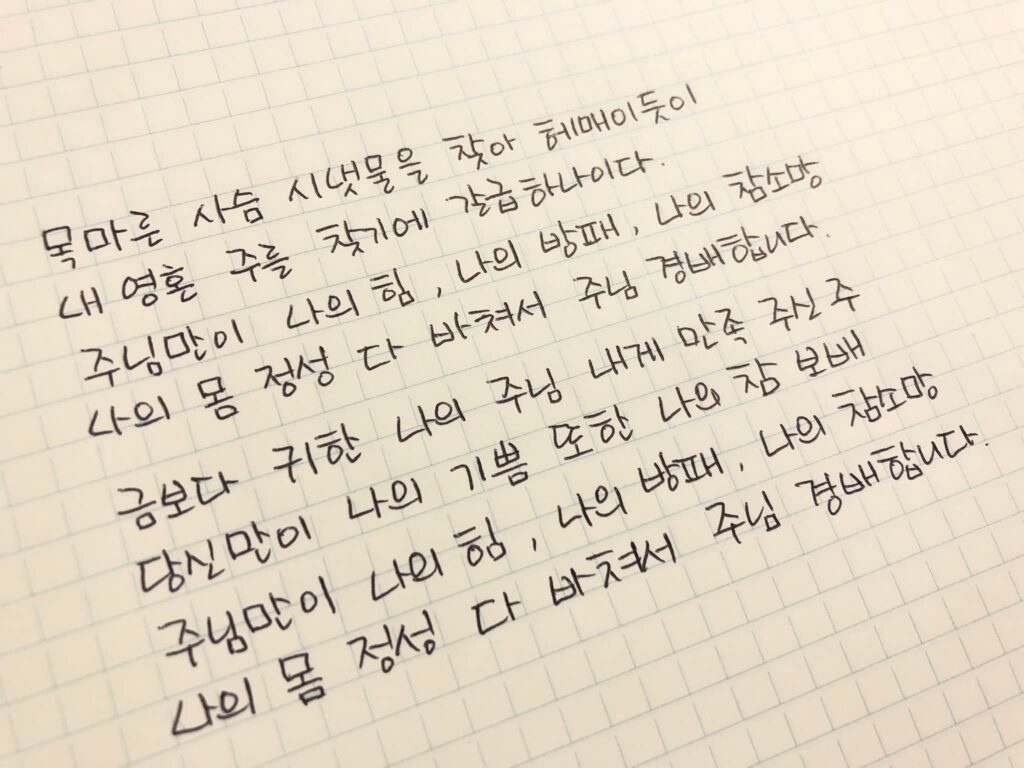 목마른 사슴 시냇물을 찾아 헤매이듯이
내 영혼 주를 찾기에 갈급하나이다.
주님만이 나의 힘, 나의 방패, 나의 참소망
나의 몸 정성 다 바쳐서 주님 경배합니다.
금보다 귀한 나의 주님 내게 만족 주신 주
당신만이 나의 기쁨 또한 나의 참 보배
주님만이 나의 힘, 나의 방패, 나의 참소망
나의 몸 정성 다 바쳐서 주님 경배합니다.